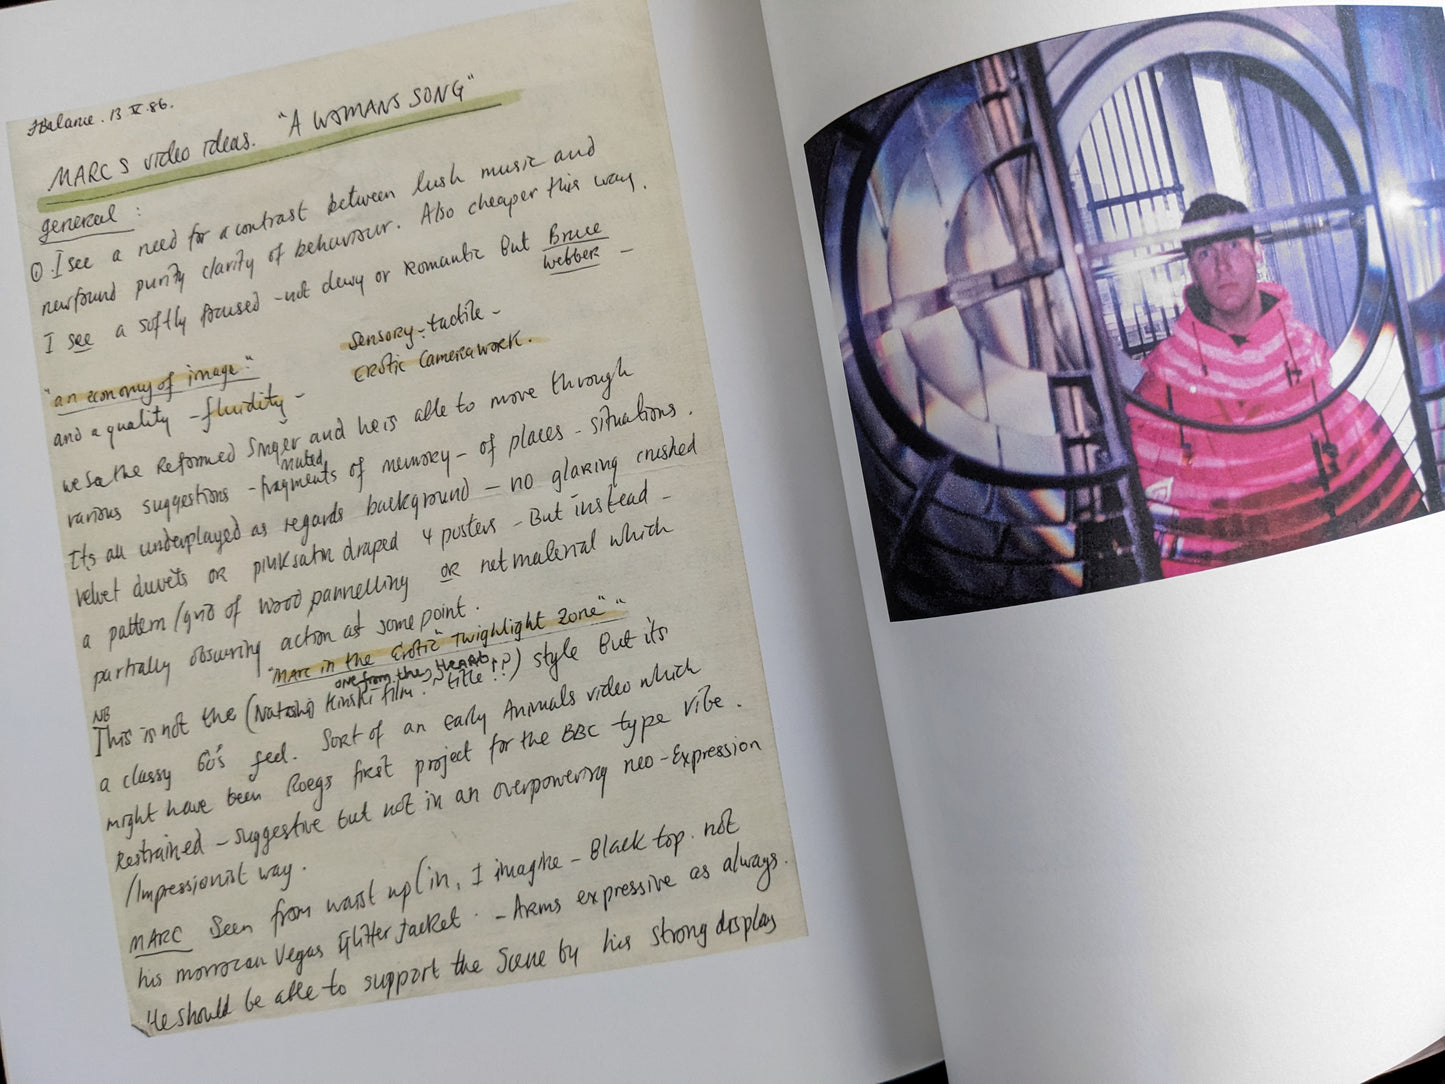 JBalance. 13 X 86.
MARC S video ideas. "A WOMANS SONG"
general :
① . I see a need for a contrast between lush music and
newfound purity clarity of behaviour. Also cheaper this way.
I see a softly focused - not dewy or Romantic But Bruce
Webber -
Sensory - tactile -
"an economy of image." EROtic Camerawork.
and a quality - fluidity -
we the Reformed Singer and he is able to move through
various suggestions - muted fragments of memory - of places - situations.
Its all underplayed as regards background - no glaring crushed
velvet duvets OR pink satin draped 4 posters - But instead -
a pattern/grid of wood pannelling OR net material which
partially obscuring action at some point.
"MARC in the Erotic" Twighlight Zone""
one from the HEART
NB
This is not the (Natashi Kinski film. ~ title !?) style But its
a classy 60's feel. Sort of an early Animals video which
might have been Roegs first project for the BBC type vibe.
Restrained - suggestive but not in an overpowering neo-Expression
/Impressionist way.
MARC Seen from waist up (in, I imagine - Black top. not
his morrocan Vegas Glitter Jacket. - Arms expressive as always.
He should be able to support the scene by his strong display